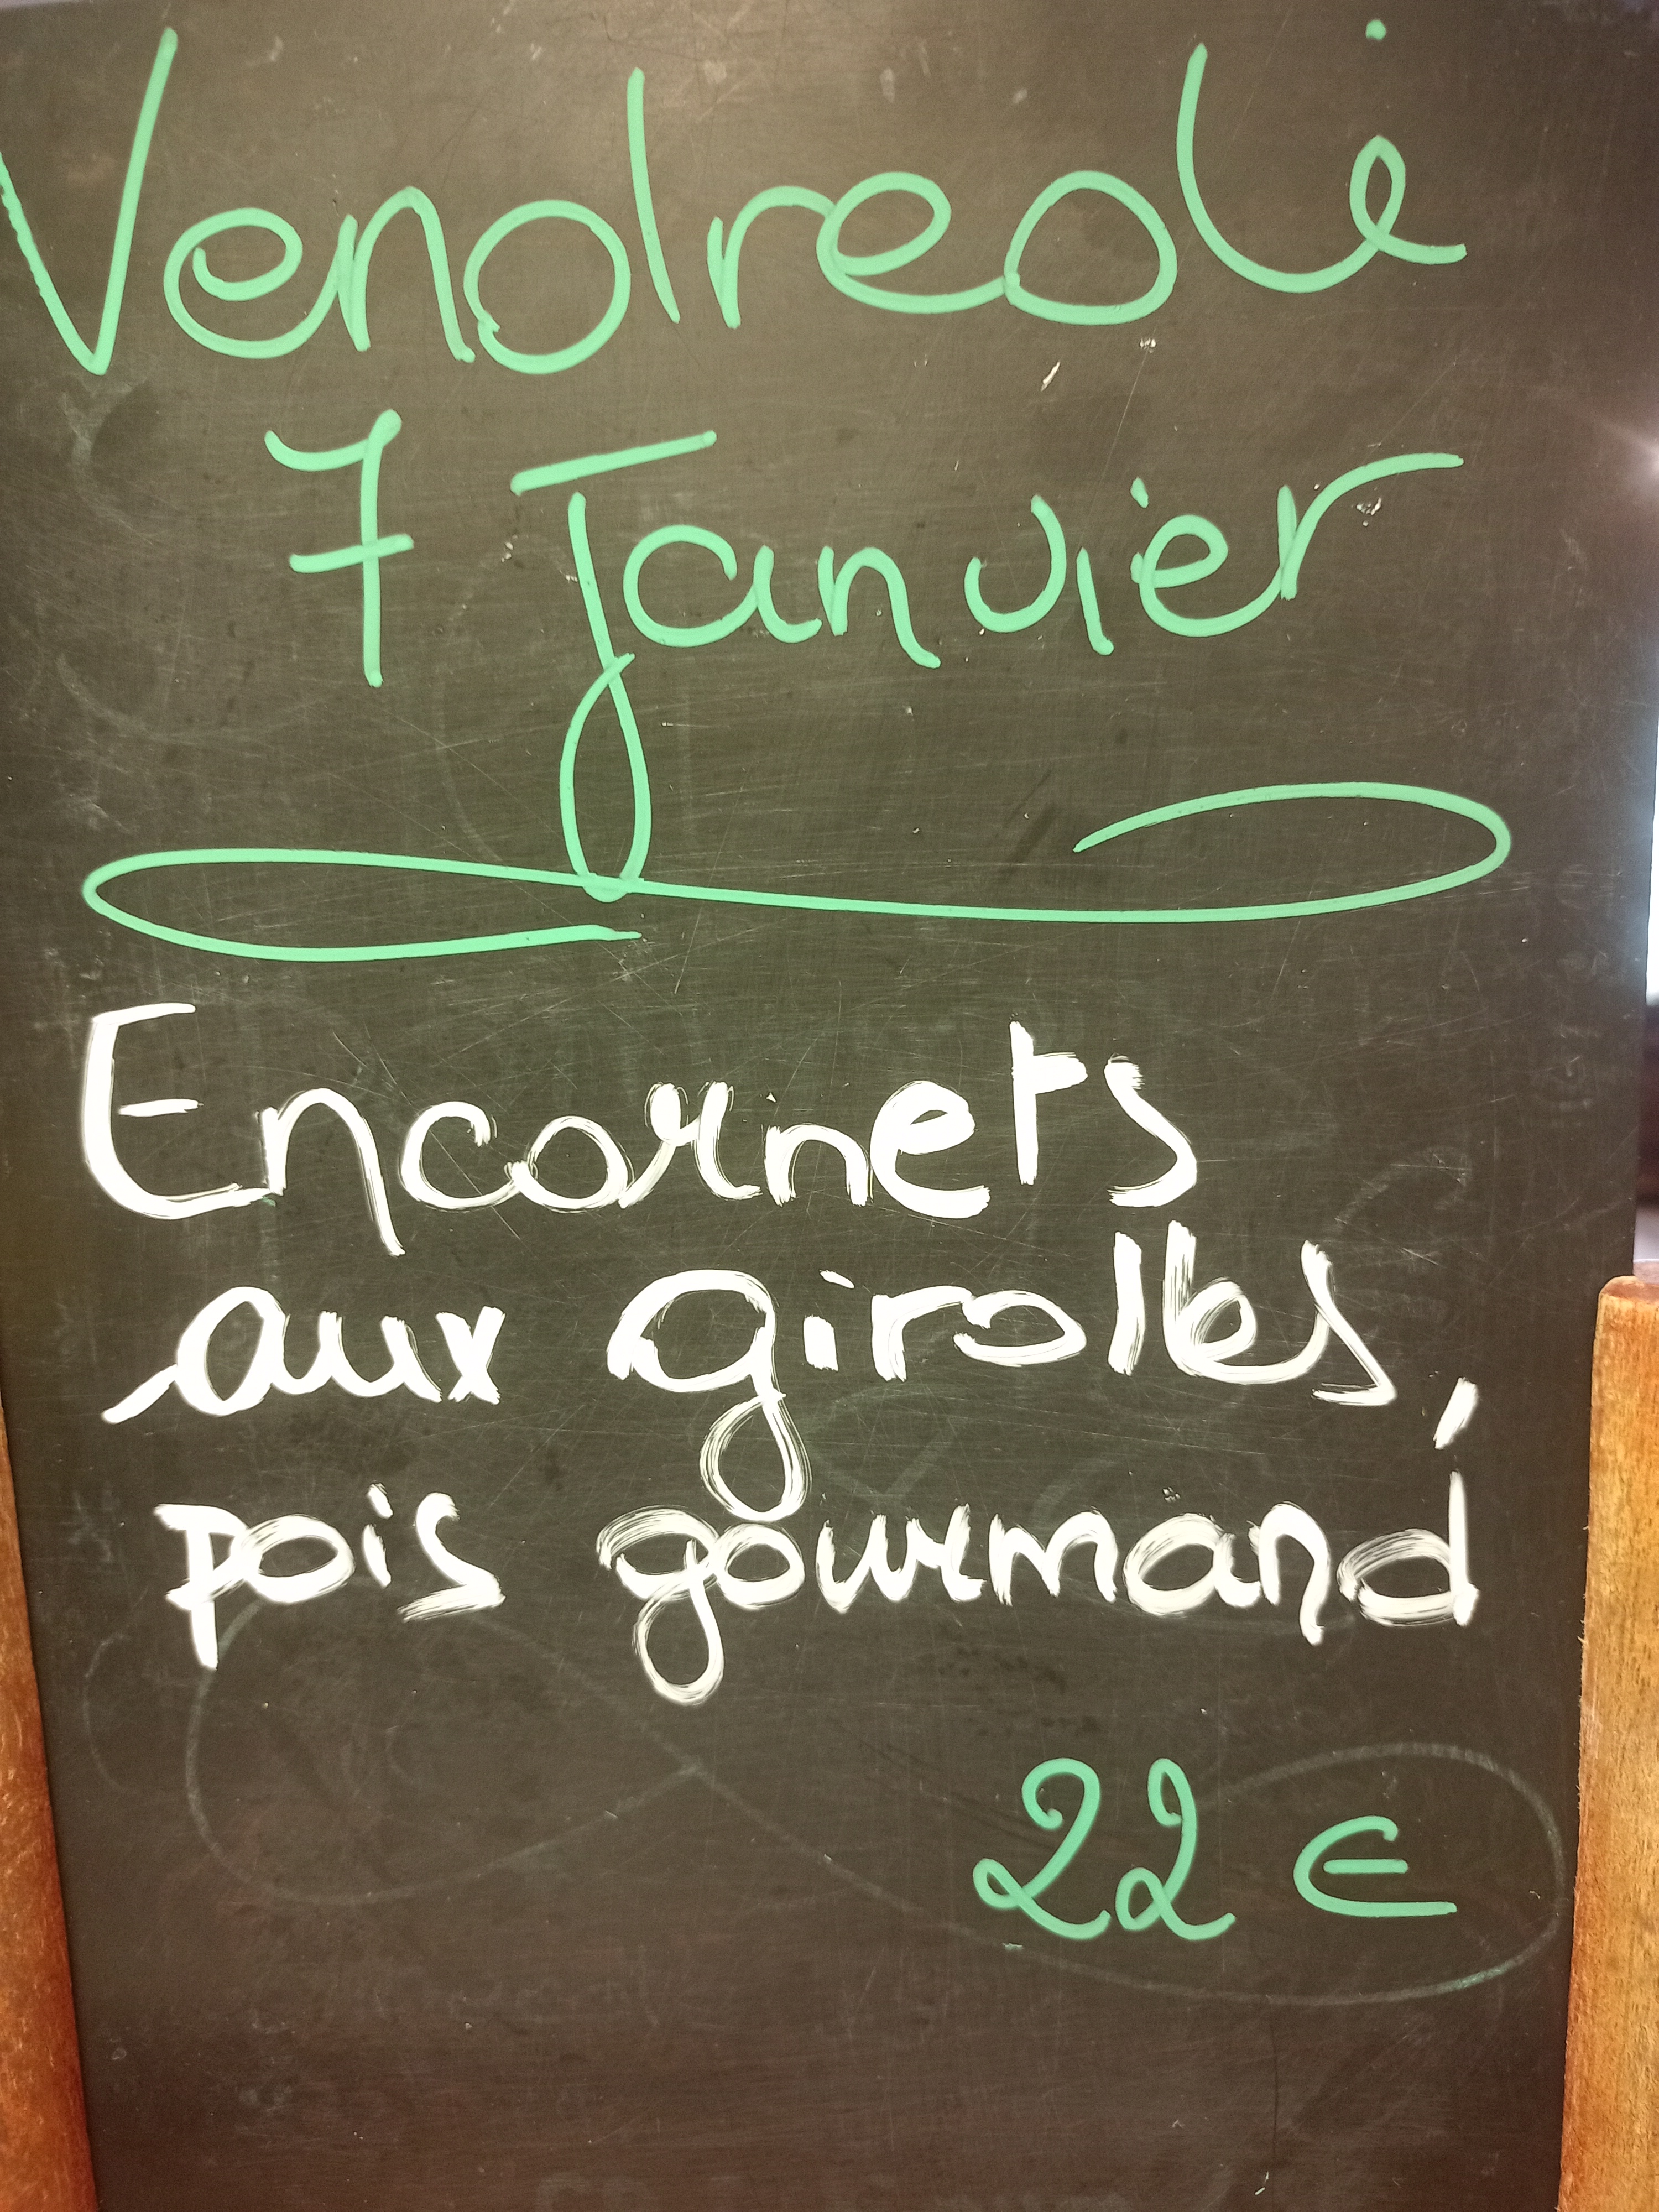 Vendredi
7 Janvier
Encornets
aux girolles,
pois gourmand
22 €